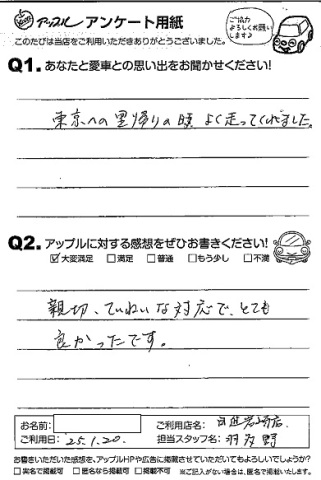 アップル アンケート用紙
ご協力
よろしくお願い
します♪
このたびは当店をご利用いただきありがとうございました。
Q1. あなたと愛車との思い出をお聞かせください!
東京への里帰りの時 よく走ってくれました。
Q2. アップルに対する感想をぜひお書きください!
☑大変満足 □満足 □普通 □もう少し □不満
親切、ていねいな対応で、とても
良かったです。
お名前:
ご利用店名:
ご利用日: '25.1.20.
担当スタッフ名: 羽多野
お書きいただいた感想を、アップルHPや広告に掲載させていただいてもよろしいでしょうか?
□実名で掲載可 □匿名なら掲載可 □掲載不可 ※ご記入がない場合は、匿名で掲載いたします。